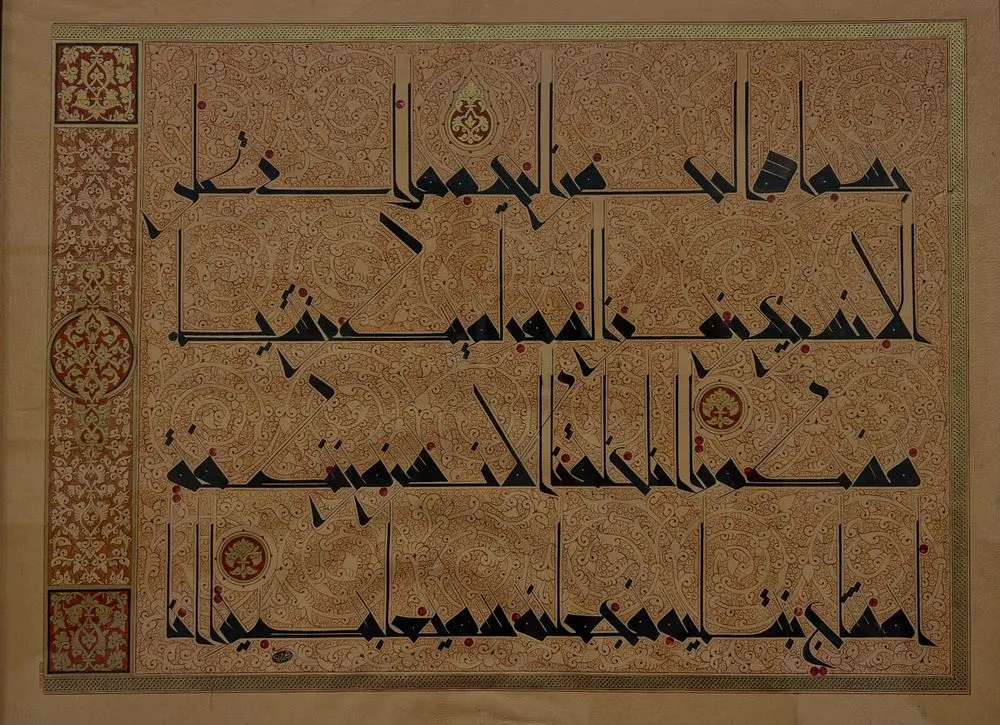 بسم الله الرحمن الرحيم هل اتى على
الانسن حين من الدهر لم يكن شيا
مذكورا انا خلقنا الانسن من نطفة
امشاج نبتليه فجعلنه سميعا بصيرا انا